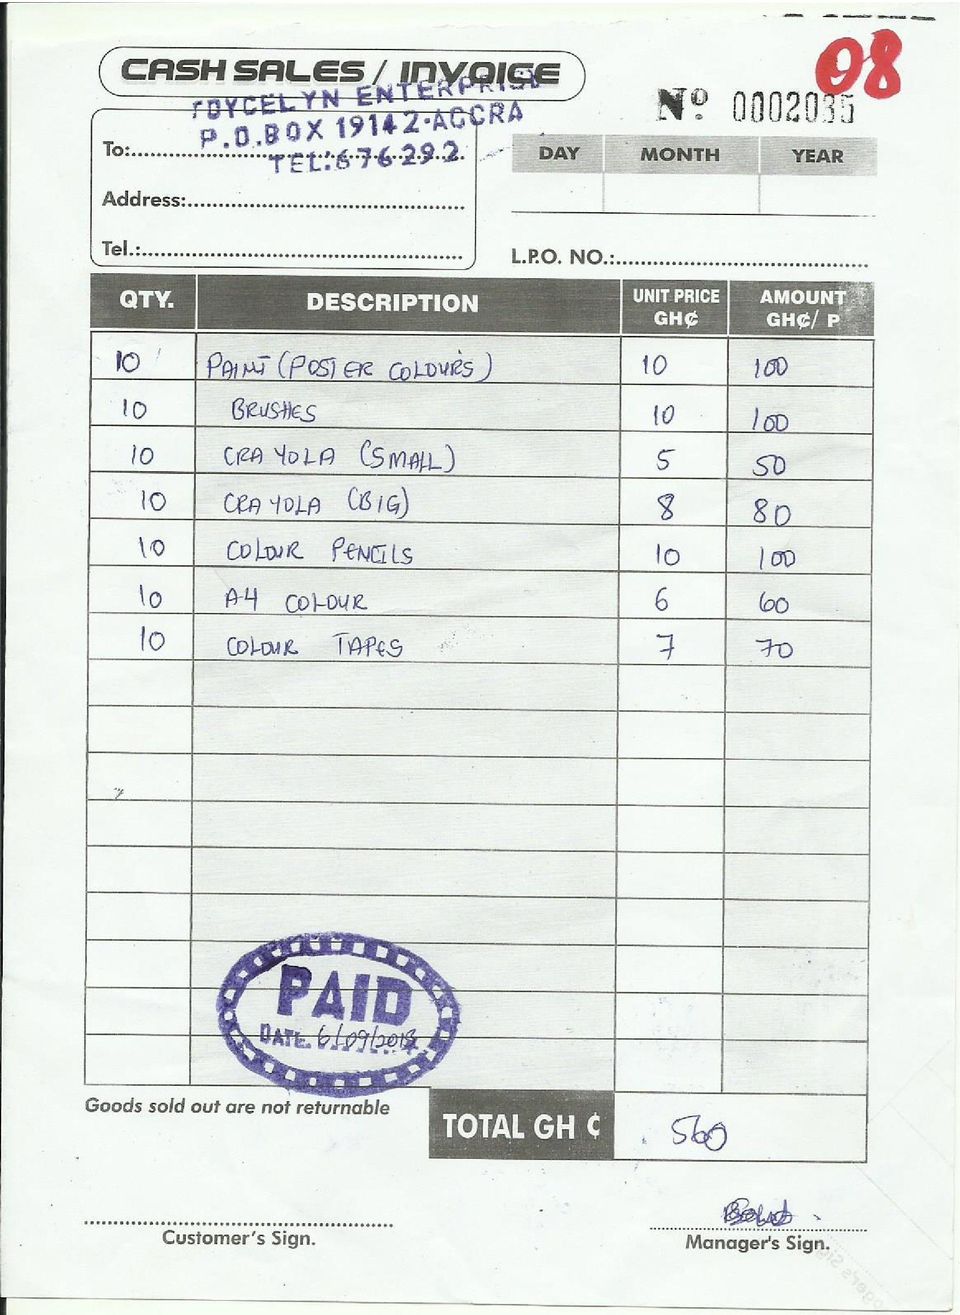 08
CASH SALES / INVOICE
JOYCELYN ENTERPRISE
P.O.BOX 19142-ACCRA
TEL: 676292
Nº 0002035
To:
Address:
Tel.:
DAY MONTH YEAR
L.P.O. NO.:
QTY. DESCRIPTION UNIT PRICE GH₵ AMOUNT GH₵/ P
10 PAINT (POSTER COLOURS) 10 100
10 BRUSHES 10 100
10 CRAYOLA (SMALL) 5 50
10 CRAYOLA (BIG) 8 80
10 COLOUR PENCILS 10 100
10 A4 COLOUR 6 60
10 COLOUR TAPES 7 70
PAID
DATE. 6/09/2018
Goods sold out are not returnable
TOTAL GH ₵ 560
Customer's Sign.
Manager's Sign.